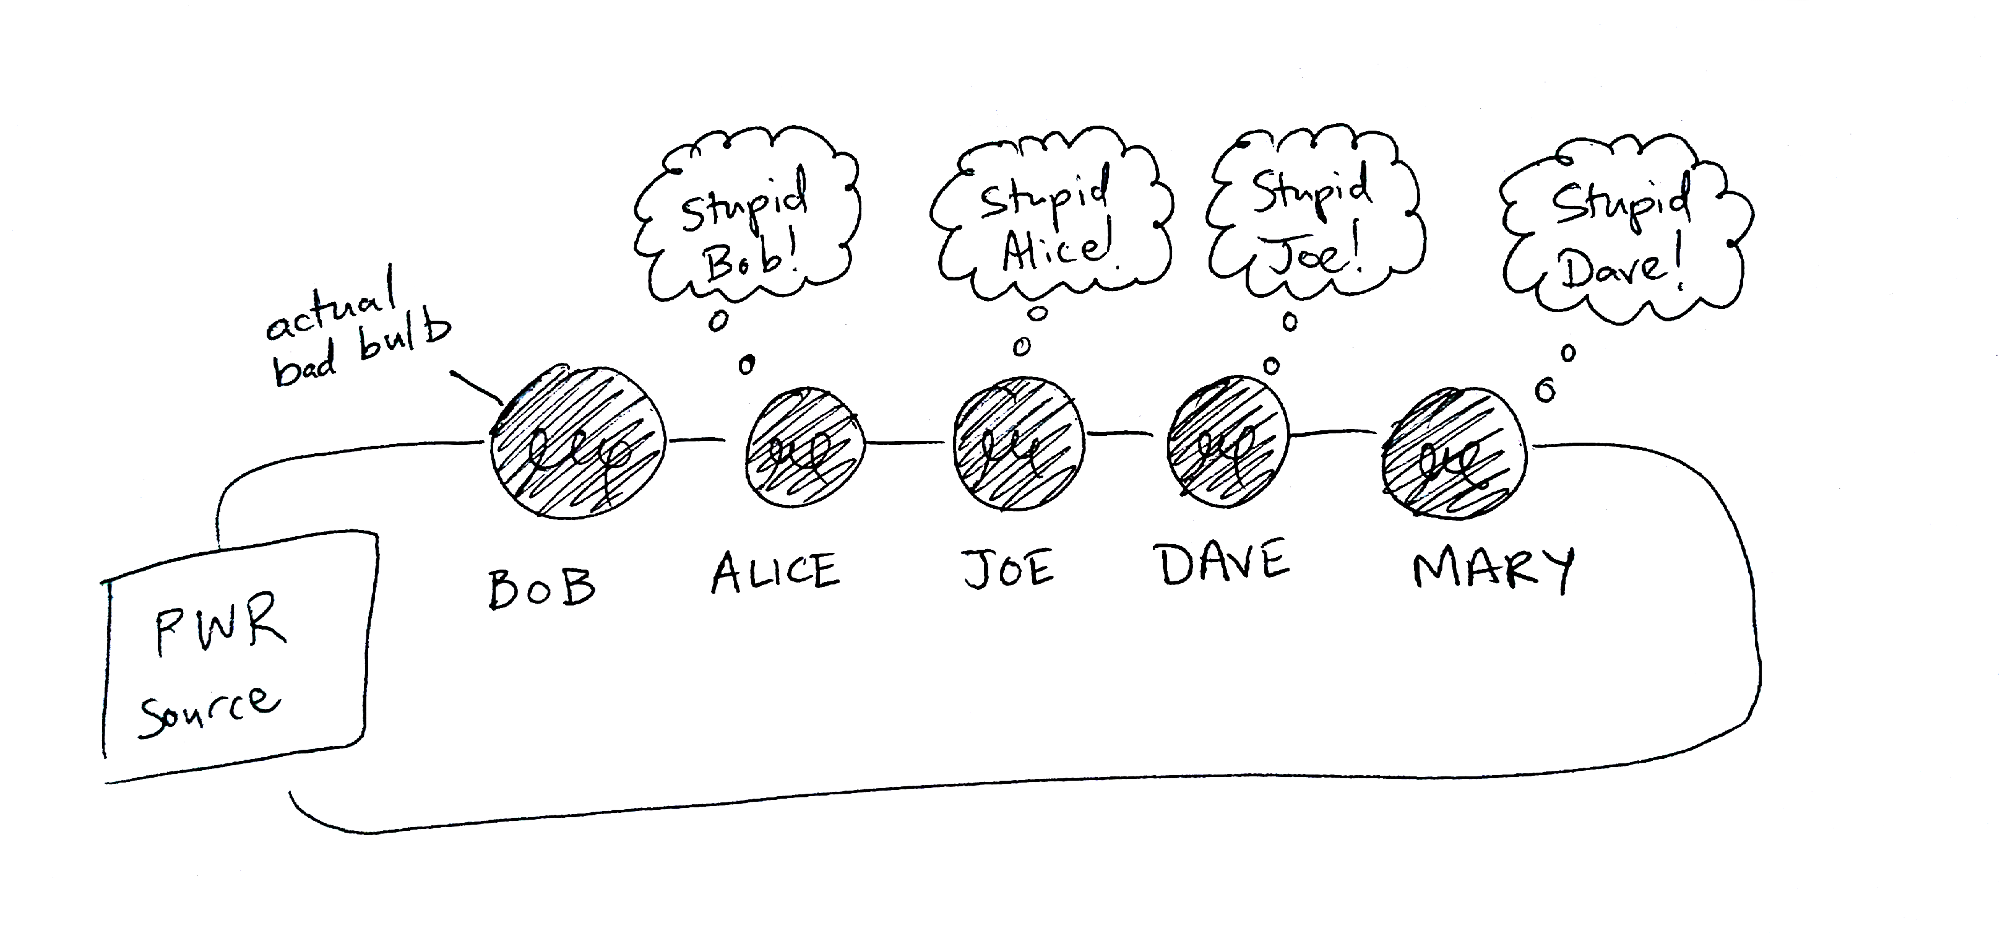 Stupid
Bob!
Stupid
Alice!
Stupid
Joe!
Stupid
Dave!
actual
bad bulb
BOB
ALICE
JOE
DAVE
MARY
PWR
Source